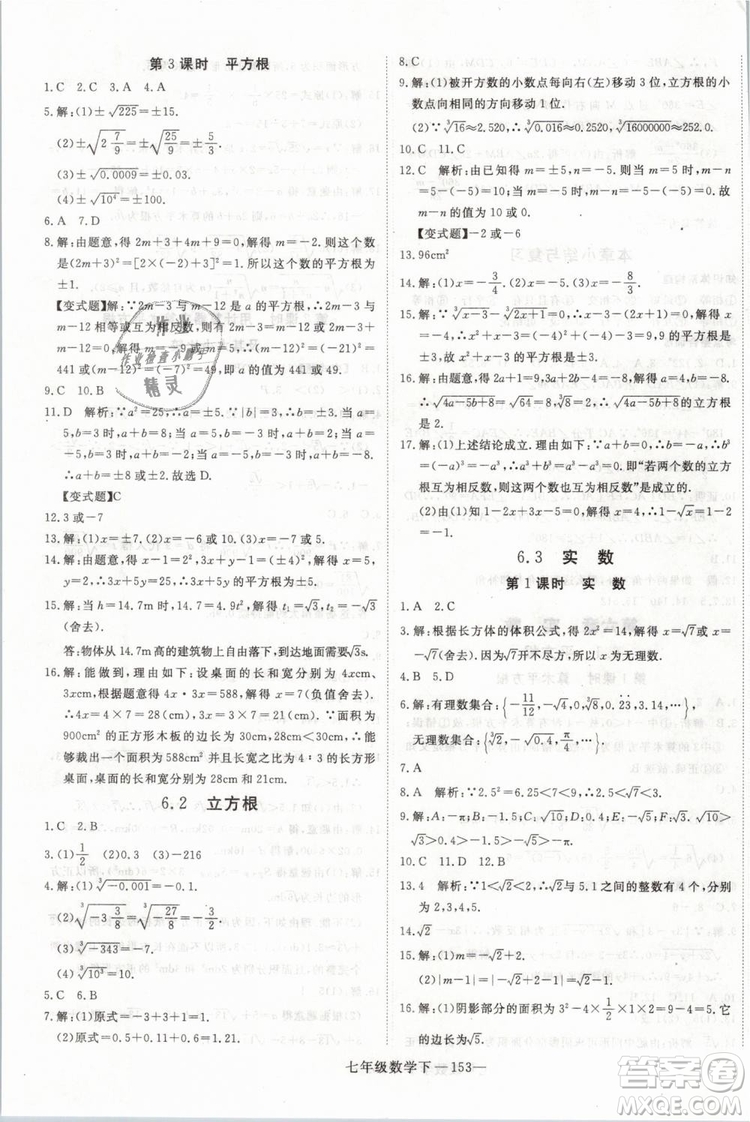 第3课时 平方根
1.C 2.C 3.A 4.A
5.解:(1)±√225=±15.
(2)±√(2 7/9)=±5/3.
(3)±√0.0009=±0.03.
(4)±√10⁴=±100.
6.A 7.D
8.解:由题意,得2m+3+4m+9=0,解得m=-2.
∴(2m+3)²=[2×(-2)+3]²=1.所以这个数的平方根为
±1.
【变式题】解:∵2m-3与m-12是a的平方根,∴2m-3与
m-12相等或互为相反数,∴2m-3=m-12或2m-3+
m-12=0,解得m=-9或m=5,∴a=(-9-12)²=
441或a=(5-12)²=49.即a的值为441或49.
9.C 10.B
11.D 解析:∵a²=25,∴a=±5.∵|b|=3,∴b=±3.当a=
5,b=3时,a+b=8;当a=5,b=-3时,a+b=2;当a=-
5,b=3时,a+b=-2;当a=-5,b=-3时,a+b=-8.综
上所述,a+b=±8或±2.故选D.
【变式题】C
12.3或-7
13.解:(1)x=±2/3.(2)x=-6或10.(3)x=-4或7.
14.解:由题意得x-1=2²,x-2y+1=3²,解得x=5,y=-
3/2,∴x²-4y²=5²-4×(-3/2)²=16,∴x²-4y²的平方根为
±4.
15.解:当h=14.7m时,4.9t²=14.7,解得t₁=√3,t₂=-√3
(舍去).
答:物体从14.7m高的建筑物上自由下落,到达地面需要√3s.
16.解:能做到,理由如下:设桌面的长和宽分别为4x cm和
3xcm.根据题意得4x×3x=588,解得x²=49.∵x>0,
∴x=√49=7.∴4x=4×7=28,3x=3×7=21.∵面积为
900cm²的正方形木板的边长为30cm,28cm<30cm,∴
能够裁出一个面积为588cm²并且长宽之比为4:3的长方形
桌面,桌面的长和宽分别为28cm和21cm.
6.2 立方根
1.C 2.B
3.(1)1/2 (2)0.3 (3)-216
4.解:(1)∛-0.001=-0.1.
(2)∛(-3 3/8)=∛(-27/8)=-3/2.
(3)∛-343=-7.
(4)∛10³=10.
5.C 6.B
7.解:(1)原式=-3+3+1=1.
(2)原式=0.5+0.1+0.6=1.2.
8.C
9.解:(1)被开方数的小数点每向右(左)移动3位,立方根的小
数点向相同的方向移动1位.
(2)∵∛16≈2.520,∴∛0.016≈0.2520,∛16000≈25.20.
10.C 11.C
12.C 解析:由已知得m=±5,n=-5,∴m-n=10或0,即
m-n的值为10或0.
【变式题】-2或-6
13.96cm²
14.解:(1)x=-3/4.(2)x=1.(3)x=-6.(4)x=-8/5.
15.解:∵∛(x-3)-∛(x-3)=0,∴x-3=1或x-3=-1或x
-3=0.∴x=4或x=2或x=3.
16.解:根据题意,得6a+1=49,∴a=8.∵a-b-1=8,∴b=
-1.∴√(4a-5b+8)=√64=8,∛64=2,即√(4a-5b+8)的立
方根是2.
17.解:(1)上述结论成立.理由如下:∵a+b=0,∴b=-a,
∴b³=(-a)³=-a³,∴a³+b³=0.即“若两个数的立方
根互为相反数,则这两个数也互为相反数”是成立的.
(2)由(1)知,3-2x+x+5=0,解得x=8,∴1-√(2x)=1-
√16=-3.
6.3 实 数
第1课时 实 数
1.A 2.C
3.解:根据长方体的体积公式,得2x²=14,∴x²=7,∴x=√7.
4.B 5.D
6.解:有理数集合:{-11/12,-√4,0,0.2̇3̇,3.14,…};
无理数集合:{∛2,-√0.4,π/4,…}.
7.A
8.A 解析:∵√6.25=2.5,6.25<7<9,∴2.5<√7<3.
9.解:数轴表示略,|-3|>√7>√3>0>-1.5>-π.
10.C 11.D 12.B
13.4 解析:∵1<√2<2,∴√2与5.1之间的整数有4个,分别
为2,3,4,5.
14.√2
15.解:(1)m=-√2+2.
(2)|m-1|=|-√2+2-1|=|-√2+1|=√2-1.
16.解:(1)阴影部分的面积为3²-4×1/2×1×2=5,正方形
的边长为√5.
七年级数学下—153—
作业
作业检查小助手
精灵